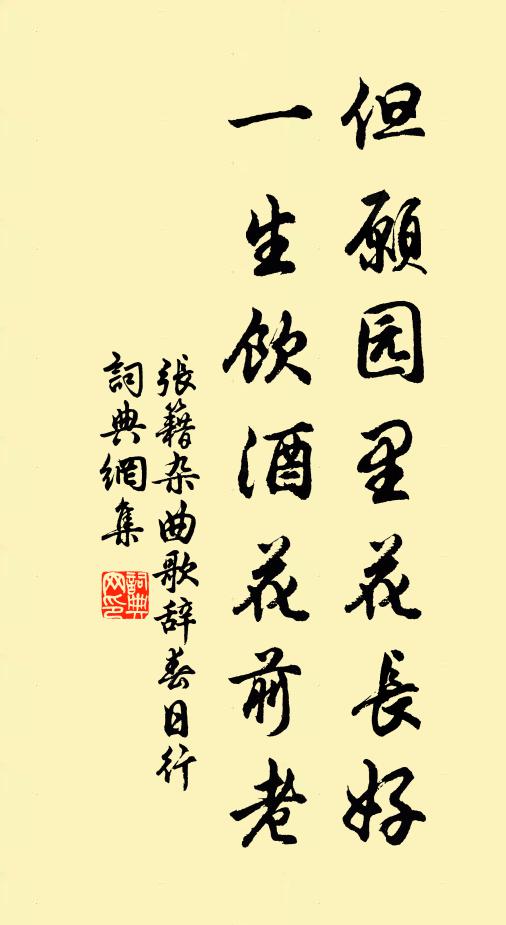 但願园里花長好
一生飲酒花前老
張籍杂曲歌辞春日行
詞典網集
詞典网印